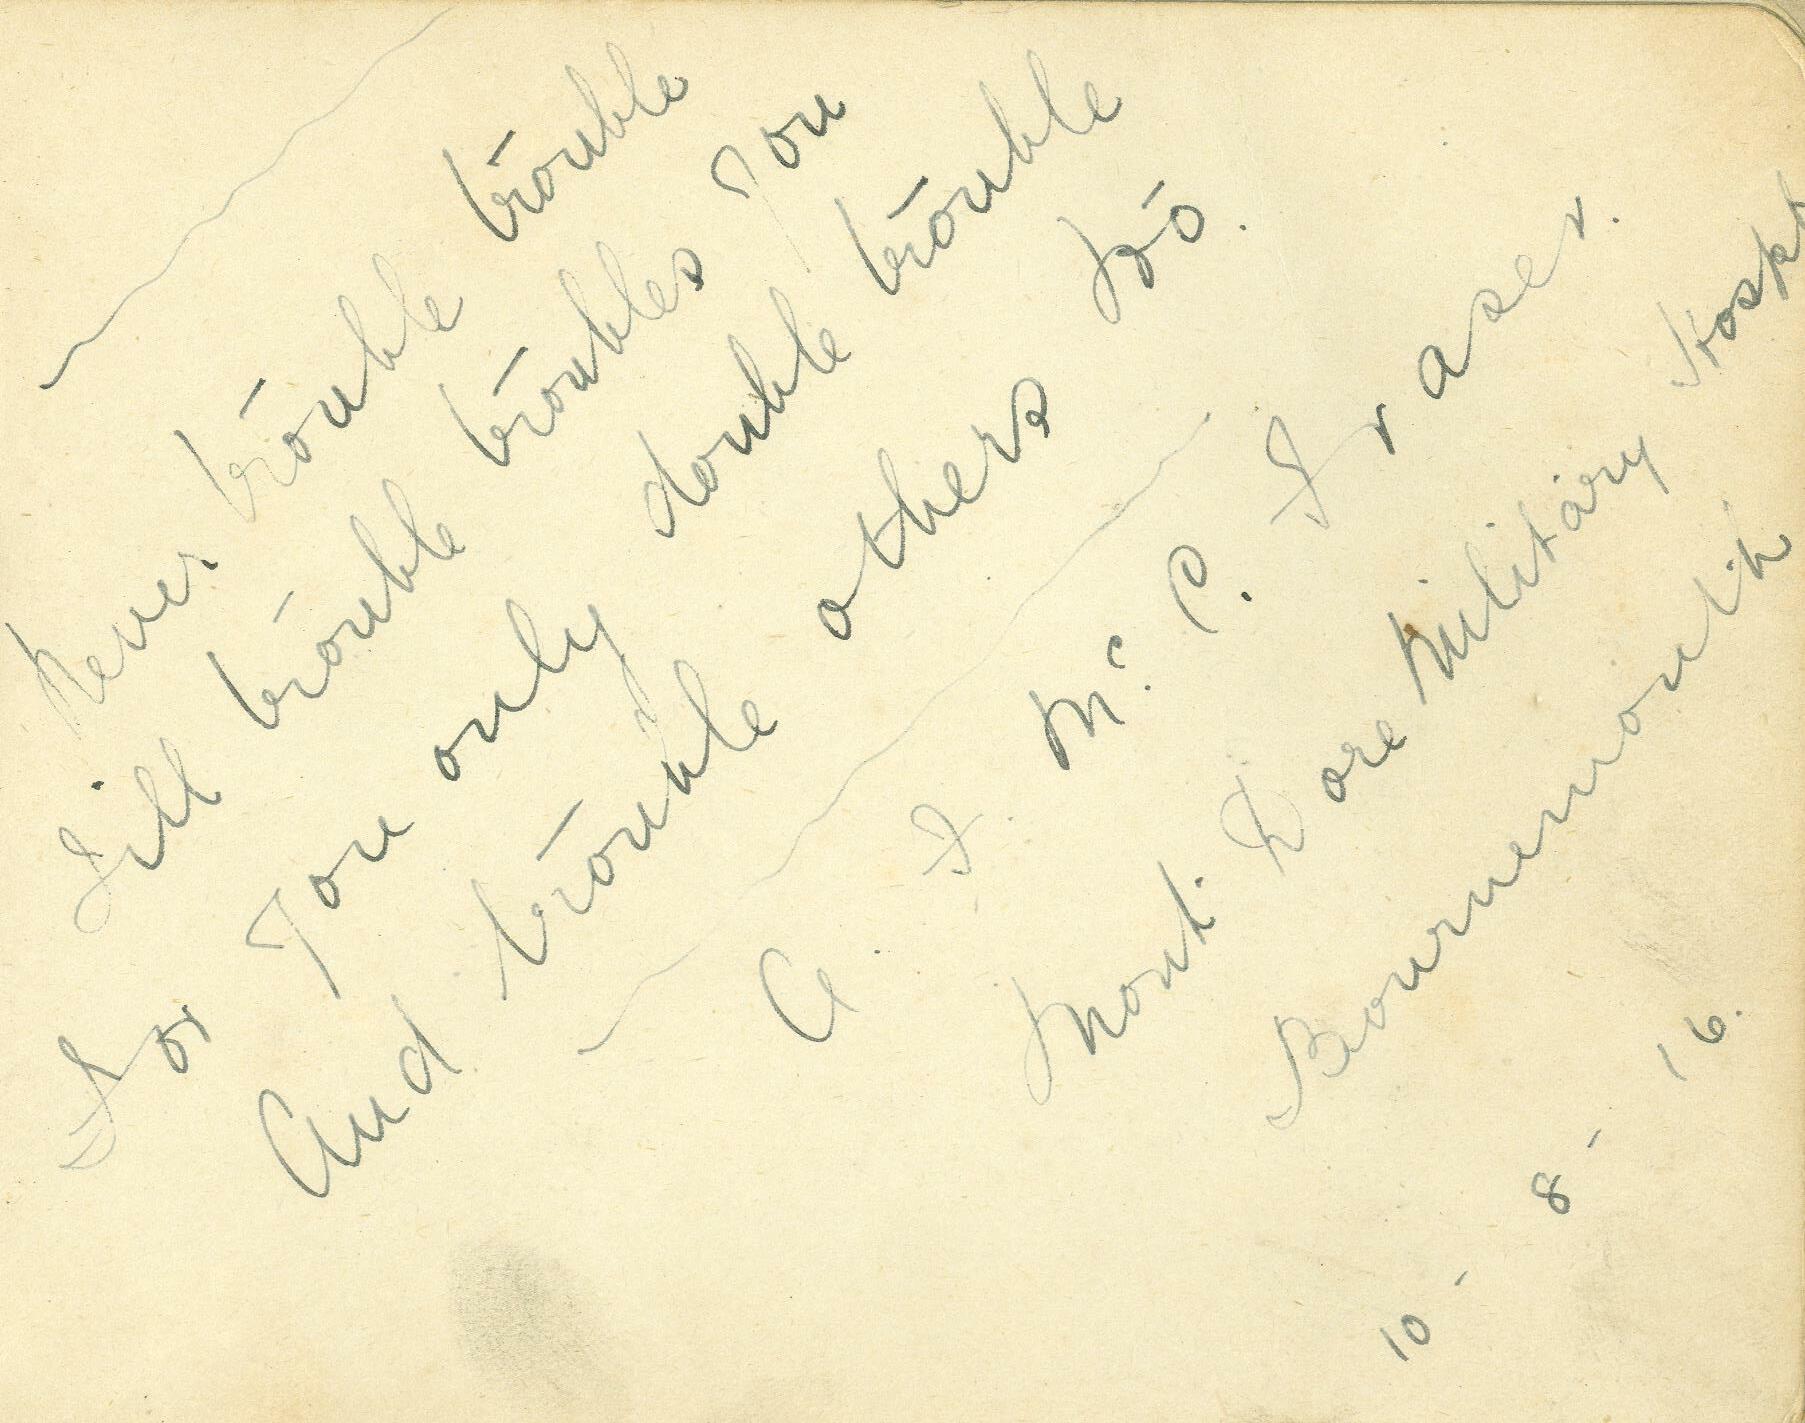 Never trouble trouble
Till trouble troubles You
For You only double trouble
And trouble others too.
A. J. McP. Fraser.
Mont Dore Military Hospt
Bournemouth
10-8-16.